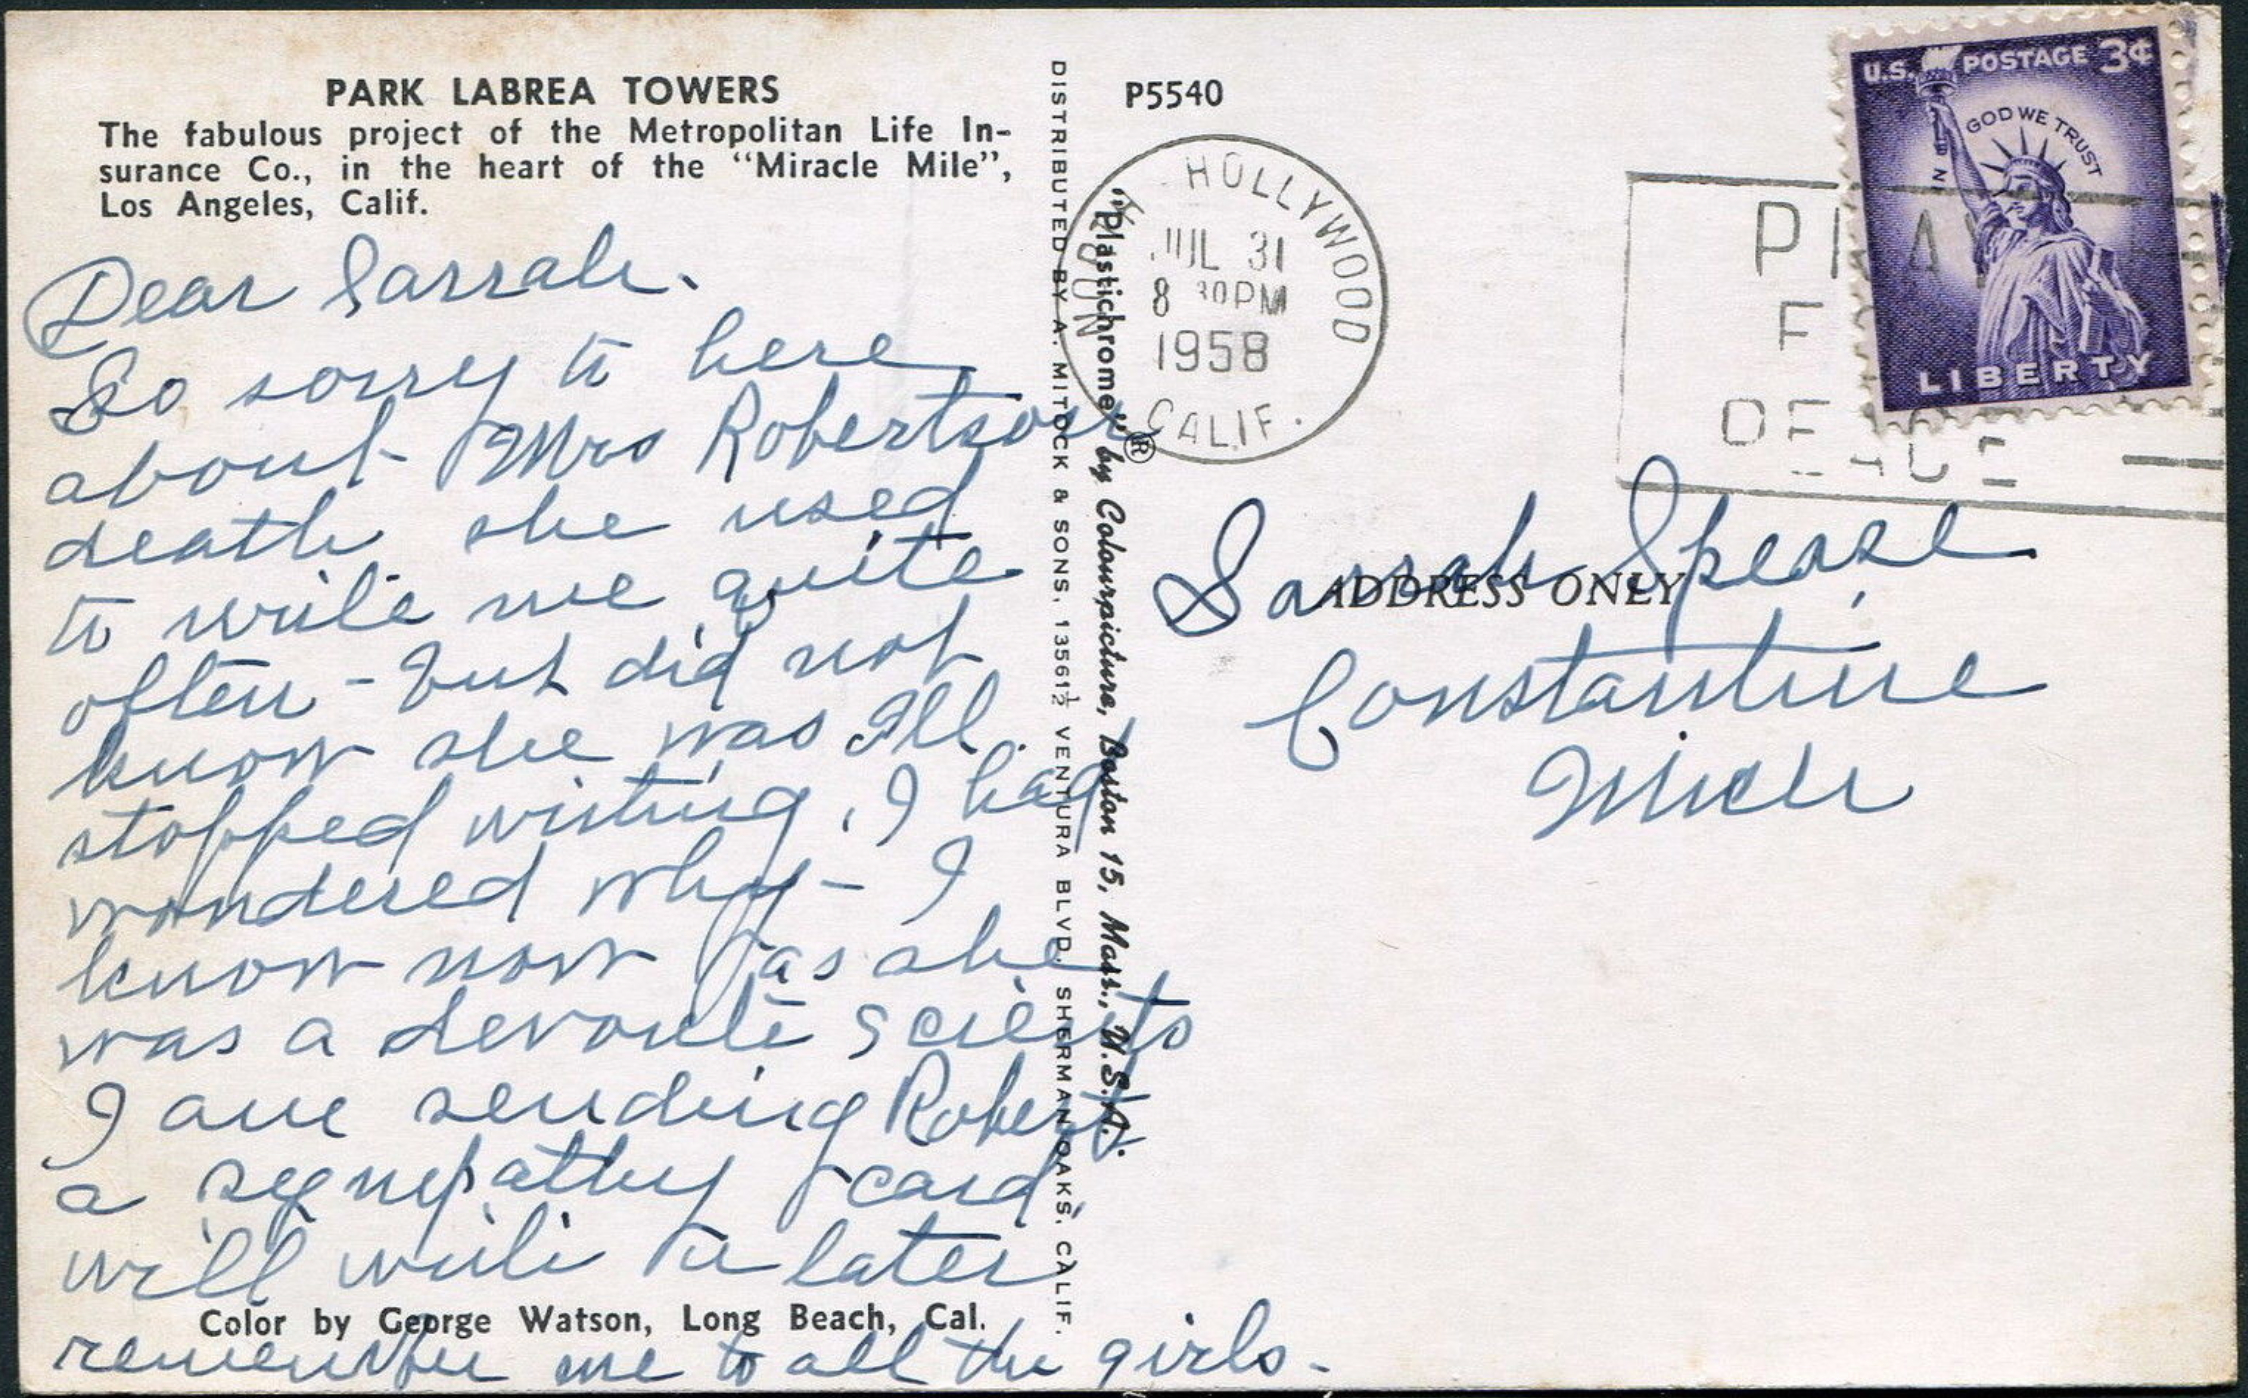 PARK LABREA TOWERS
The fabulous project of the Metropolitan Life In-
surance Co., in the heart of the "Miracle Mile",
Los Angeles, Calif.
Dear Sarrah.
So sorry to here
about Mrs Robertson
death she used
to write me quite
often - but did not
know she was Ill.
stopped writing, I had
wondered why - I
know now as she
was a devoute Scients
I am sending Roberts
a sympathy card,
will write later
Color by George Watson, Long Beach, Cal.
remember me to all the girls.
DISTRIBUTED BY A. MITOCK & SONS, 13561½ VENTURA BLVD., SHERMAN OAKS, CALIF.
"Plastichrome"® by Colourpicture, Boston 15, Mass., U.S.A.
P5540
HOLLYWOOD
JUL 31
8 30PM
1958
CALIF.
U.S. POSTAGE 3¢
IN GOD WE TRUST
LIBERTY
ADDRESS ONLY
Sarrah Spease
Constantine
Mich